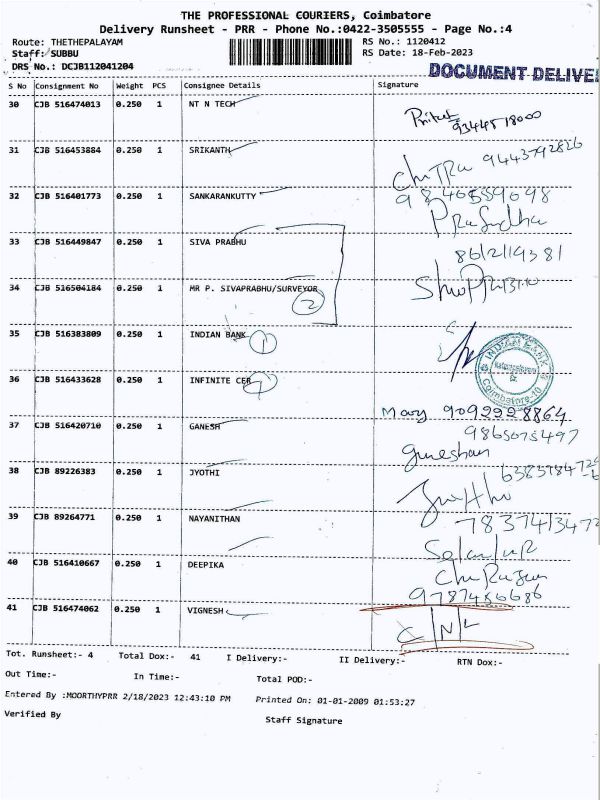 THE PROFESSIONAL COURIERS, Coimbatore
Delivery Runsheet - PRR - Phone No.:0422-3505555 - Page No.:4
Route: THETHEPALAYAM
Staff: SUBBU
DRS No.: DCJB112041204
RS No.: 1120412
RS Date: 18-Feb-2023
DOCUMENT DELIVE
S No Consignment No Weight PCS Consignee Details Signature
30 CJB 516474013 0.250 1 NT N TECH
9344518000
31 CJB 516453884 0.250 1 SRIKANTH
ChiTRa 9443792826
32 CJB 516401773 0.250 1 SANKARANKUTTY
9840559698
33 CJB 516449847 0.250 1 SIVA PRABHU
34 CJB 516504184 0.250 1 MR P. SIVAPRABHU/SURVEYOR
2
35 CJB 516383809 0.250 1 INDIAN BANK
1
INDIAN BANK
Coimbatore-10
36 CJB 516433628 0.250 1 INFINITE CER
1
Mary 9092228864
37 CJB 516420710 0.250 1 GANESH
9865075497
Guneshan
38 CJB 89226383 0.250 1 JYOTHI
39 CJB 89264771 0.250 1 NAYANITHAN
40 CJB 516410667 0.250 1 DEEPIKA
9787456686
41 CJB 516474062 0.250 1 VIGNESH
C/N/L
Tot. Runsheet:- 4 Total Dox:- 41 I Delivery:- II Delivery:- RTN Dox:-
Out Time:- In Time:- Total POD:-
Entered By :MOORTHYPRR 2/18/2023 12:43:10 PM Printed On: 01-01-2009 01:53:27
Verified By Staff Signature